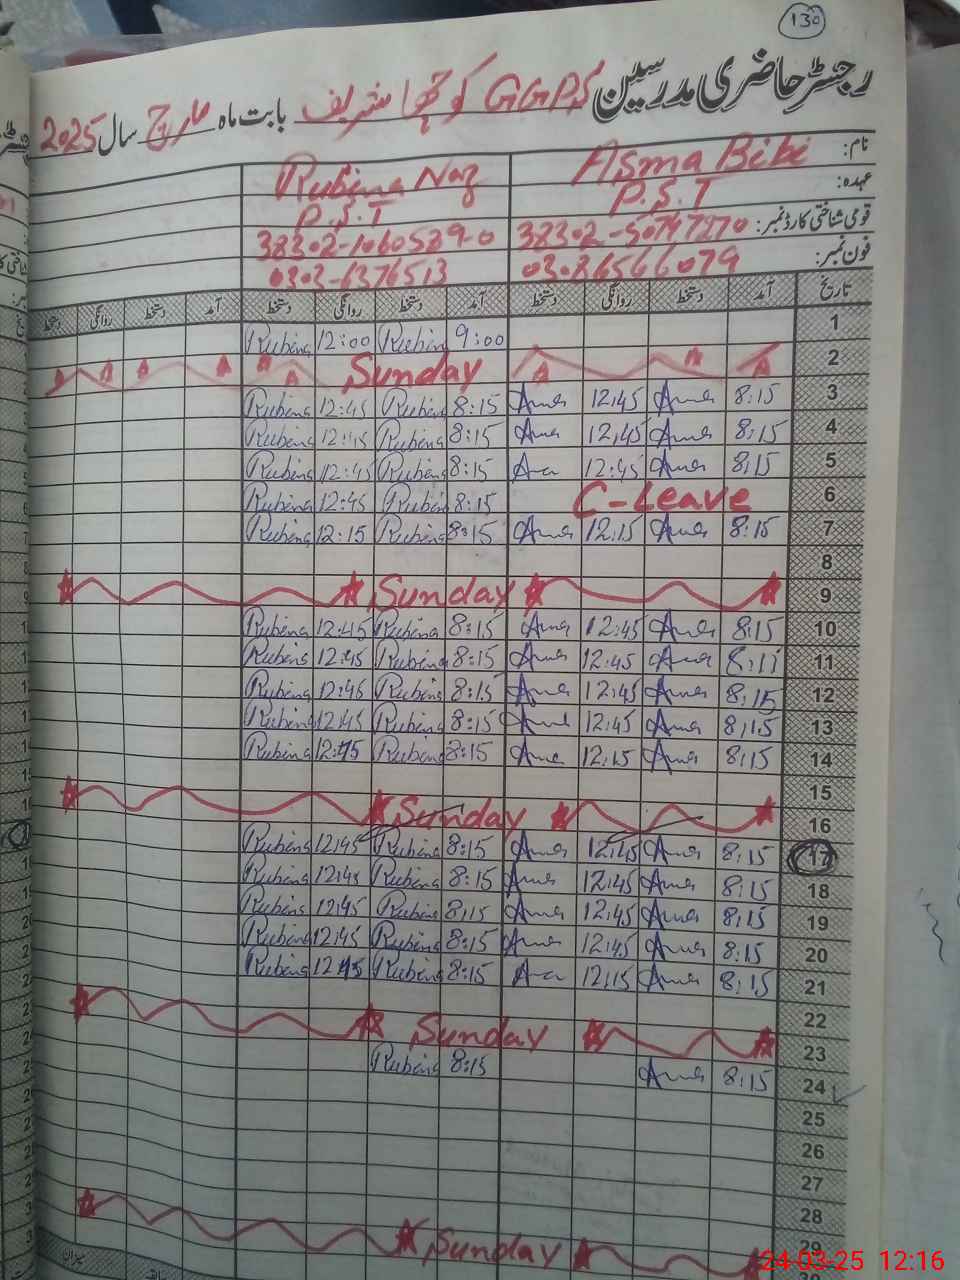 130
رجسٹر حاضری مدرسین GGPS کوٹھا شریف بابت ماہ مارچ سال 2025
نام: Asma Bibi Rubina Naz
عہدہ: P.S.T P.S.T
قومی شناختی کارڈ نمبر: 38302-1060589-0
فون نمبر: 03086566079 0303-6376513
تاریخ آمد دستخط روانگی دستخط آمد دستخط روانگی دستخط آمد دستخط روانگی دستخط
1 9:00 Rubina 12:00 Rubina
2 Sunday
3 8:15 Asma 12:45 Asma 8:15 Rubina 12:45 Rubina
4 8:15 Asma 12:45 Asma 8:15 Rubina 12:45 Rubina
5 8:15 Asma 12:45 8:15 Rubina 12:45 Rubina
6 C-Leave 8:15 Rubina 12:45 Rubina
7 8:15 Asma 12:15 Asma 8:15 Rubina 12:15 Rubina
8
9 Sunday
10 8:15 Asma 12:45 Asma 8:15 Rubina 12:45 Rubina
11 Asma 12:45 Asma 8:15 Rubina 12:45 Rubina
12 8:15 Asma 12:45 Asma 8:15 Rubina 12:45 Rubina
13 8:15 Asma 12:45 Asma 8:15 Rubina 12:45 Rubina
14 8:15 Asma 12:15 Asma 8:15 Rubina Rubina
15
16 Sunday
17 8:15 Asma Asma 8:15 Rubina 12:45 Rubina
18 8:15 Asma 12:45 Asma 8:15 Rubina 12:45 Rubina
19 8:15 Asma 12:45 Asma 8:15 Rubina 12:45 Rubina
20 8:15 Asma 12:45 Asma 8:15 Rubina 12:45 Rubina
21 8:15 Asma 12:15 8:15 Rubina Rubina
22
23 Sunday
24 8:15 Asma 8:15 Rubina
25
26
27
28
29
Sunday
میزان
24-03-25 12:16